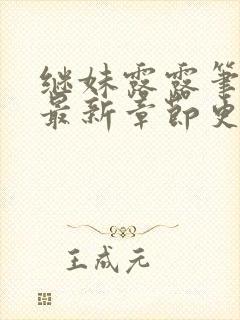 继妹露露筆
最新章節史
王成元